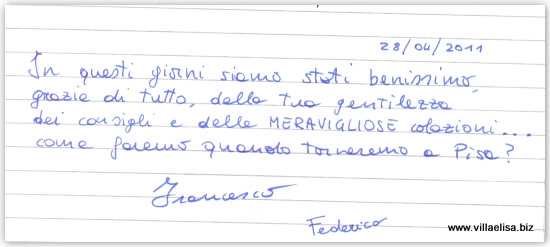 28/04/2011
In questi giorni siamo stati benissimo,
grazie di tutto, della tua gentilezza
dei consigli e delle MERAVIGLIOSE colazioni...
come faremo quando torneremo a Pisa?
Francesco
Federico
www.villaelisa.biz